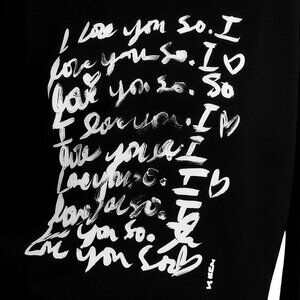 I love you so. I
love you so. I ♡
love you so. So
I love you. I ♡
love you so. I
love you so. I ♡
love you so. I
love you so. I
love you so ♡